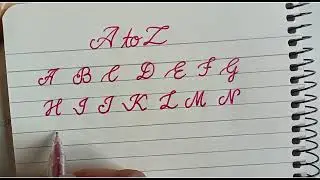 A to Z
A B C D E F G
H I J K L M N